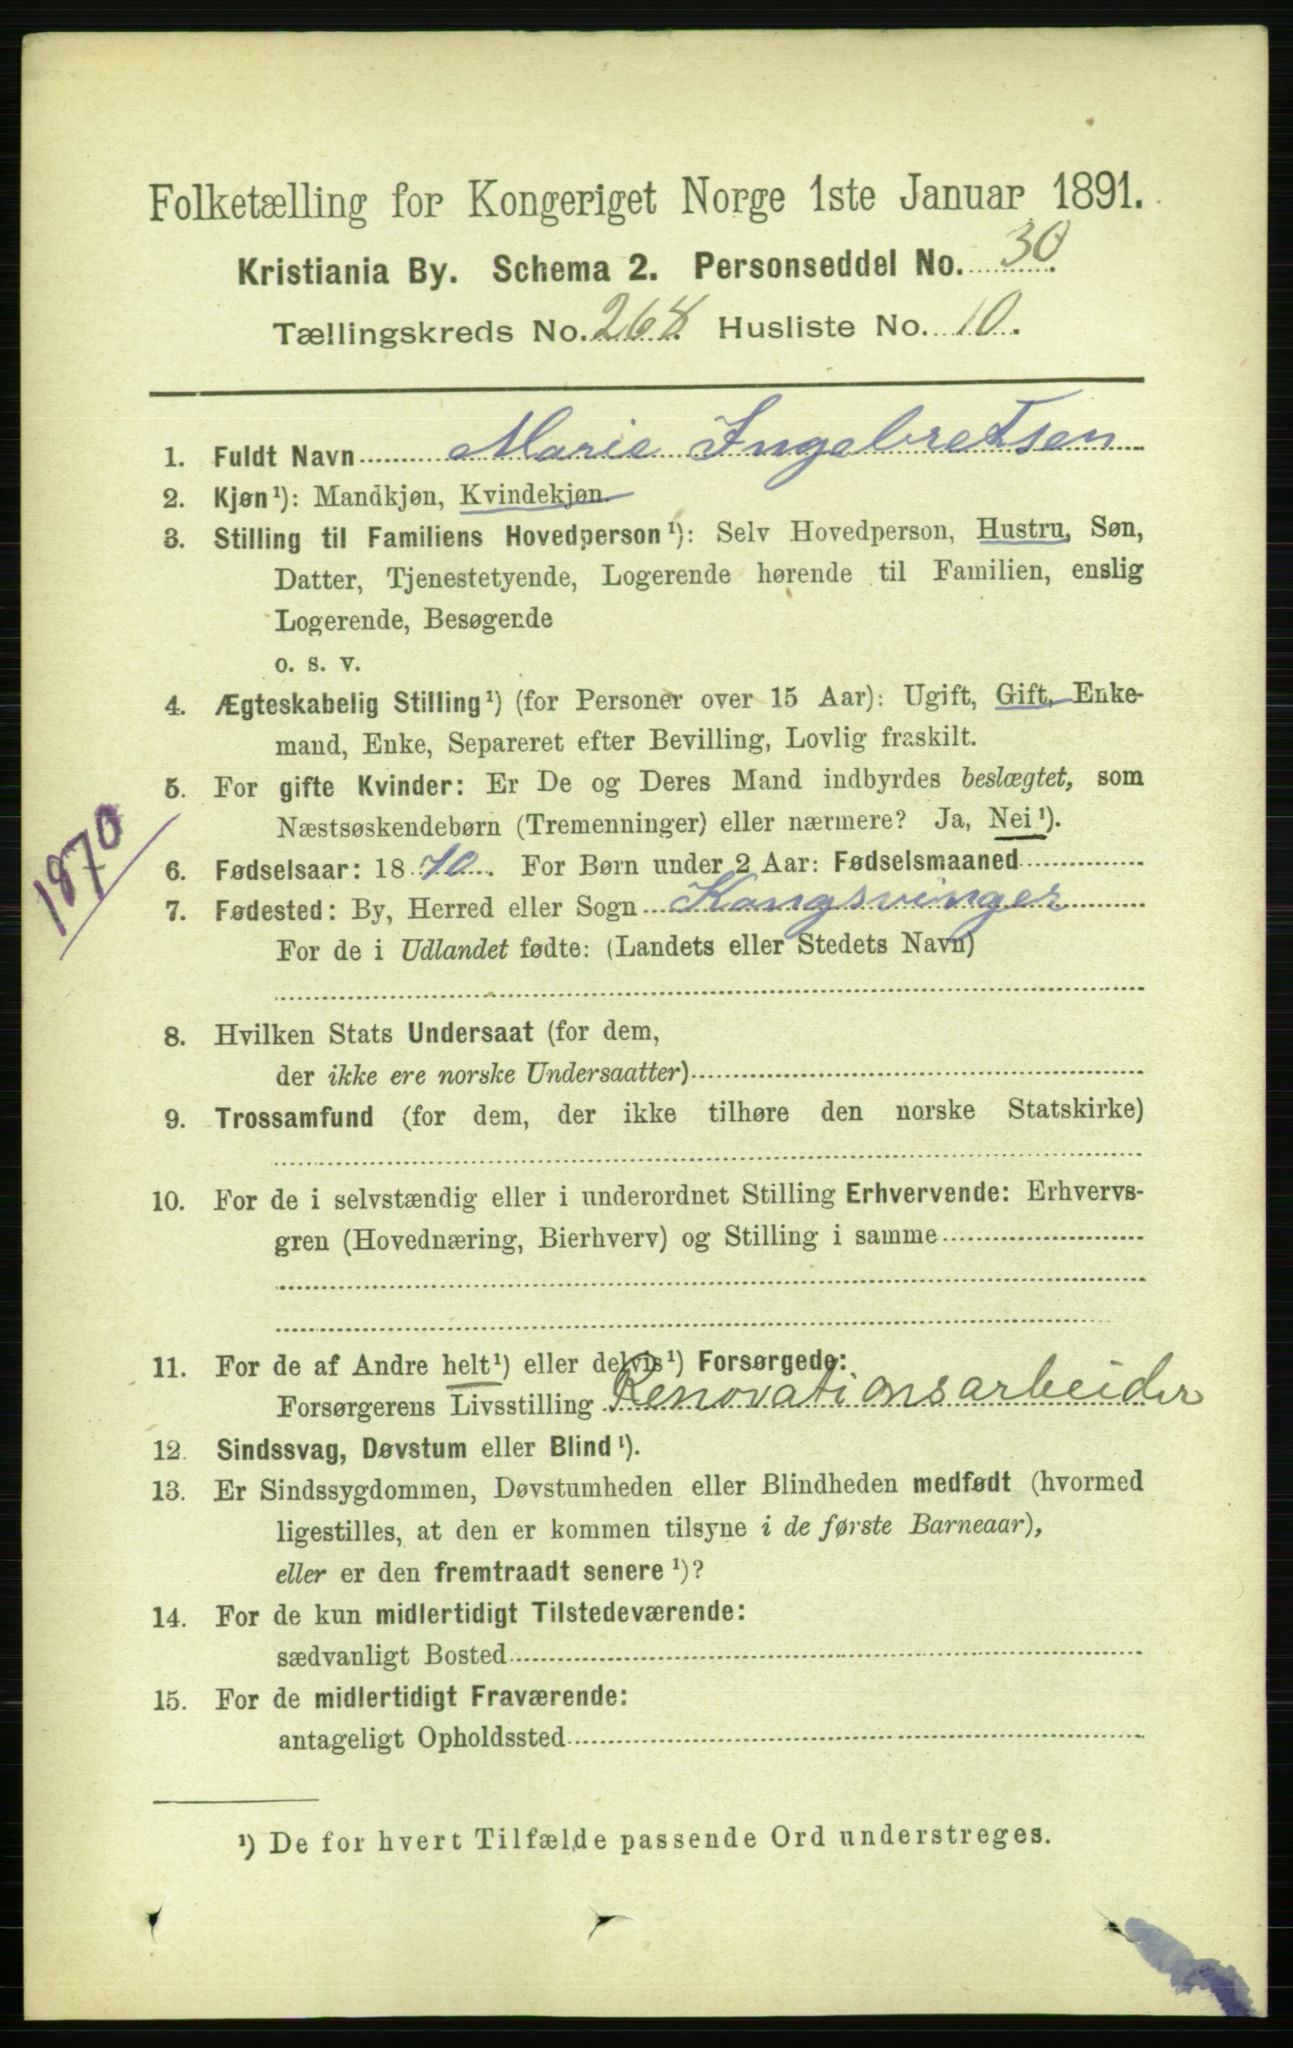 Folketælling for Kongeriget Norge 1ste Januar 1891.
Kristiania By. Schema 2. Personseddel No. 30
Tællingskreds No. 268 Husliste No. 10.
1. Fuldt Navn Marie Ingebretsen
2. Kjøn¹): Mandkjøn, Kvindekjøn.
3. Stilling til Familiens Hovedperson¹): Selv Hovedperson, Hustru, Søn,
Datter, Tjenestetyende, Logerende hørende til Familien, enslig
Logerende, Besøgende
o. s. v.
4. Ægteskabelig Stilling¹) (for Personer over 15 Aar): Ugift, Gift, Enke-
mand, Enke, Separeret efter Bevilling, Lovlig fraskilt.
5. For gifte Kvinder: Er De og Deres Mand indbyrdes beslægtet, som
Næstsøskendebørn (Tremenninger) eller nærmere? Ja, Nei¹).
1870
6. Fødselsaar: 1870. For Børn under 2 Aar: Fødselsmaaned
7. Fødested: By, Herred eller Sogn Kongsvinger
For de i Udlandet fødte: (Landets eller Stedets Navn)
8. Hvilken Stats Undersaat (for dem,
der ikke ere norske Undersaatter)
9. Trossamfund (for dem, der ikke tilhøre den norske Statskirke)
10. For de i selvstændig eller i underordnet Stilling Erhvervende: Erhvervs-
gren (Hovednæring, Bierhverv) og Stilling i samme
11. For de af Andre helt¹) eller delvis¹) Forsørgede:
Forsørgerens Livsstilling Renovationsarbeider
12. Sindssvag, Døvstum eller Blind¹).
13. Er Sindssygdommen, Døvstumheden eller Blindheden medfødt (hvormed
ligestilles, at den er kommen tilsyne i de første Barneaar),
eller er den fremtraadt senere¹)?
14. For de kun midlertidigt Tilstedeværende:
sædvanligt Bosted
15. For de midlertidigt Fraværende:
antageligt Opholdssted
¹) De for hvert Tilfælde passende Ord understreges.